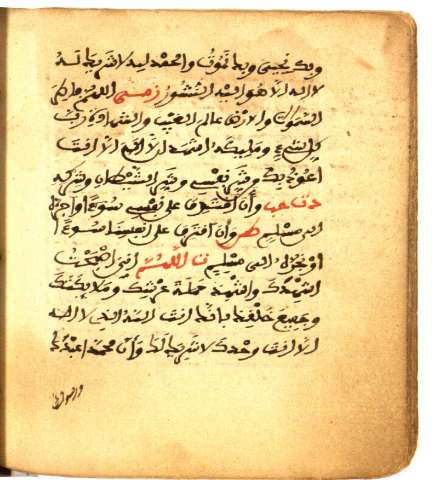 وبك نحيى وبك نموت والحمد لله لا شريك له
لا اله الا هو اليه النشور اللهم فاطر
السموات والارض عالم الغيب والشهادة رب
كل شيء ومليكه اشهد ان لا اله الا انت
اعوذ بك من شر نفسي ومن شر الشيطان وشركه
وأن اقترف على نفسي سوءا او اجره
الى مسلم وان نقترف على انفسنا سوءا
او نجره الى مسلم اللهم اني اصبحت
اشهدك واشهد حملة عرشك وملايكتك
وجميع خلقك بانك انت الله الذي لا اله
الا انت وحدك لا شريك لك وأن محمدا عبدك
ورسولك